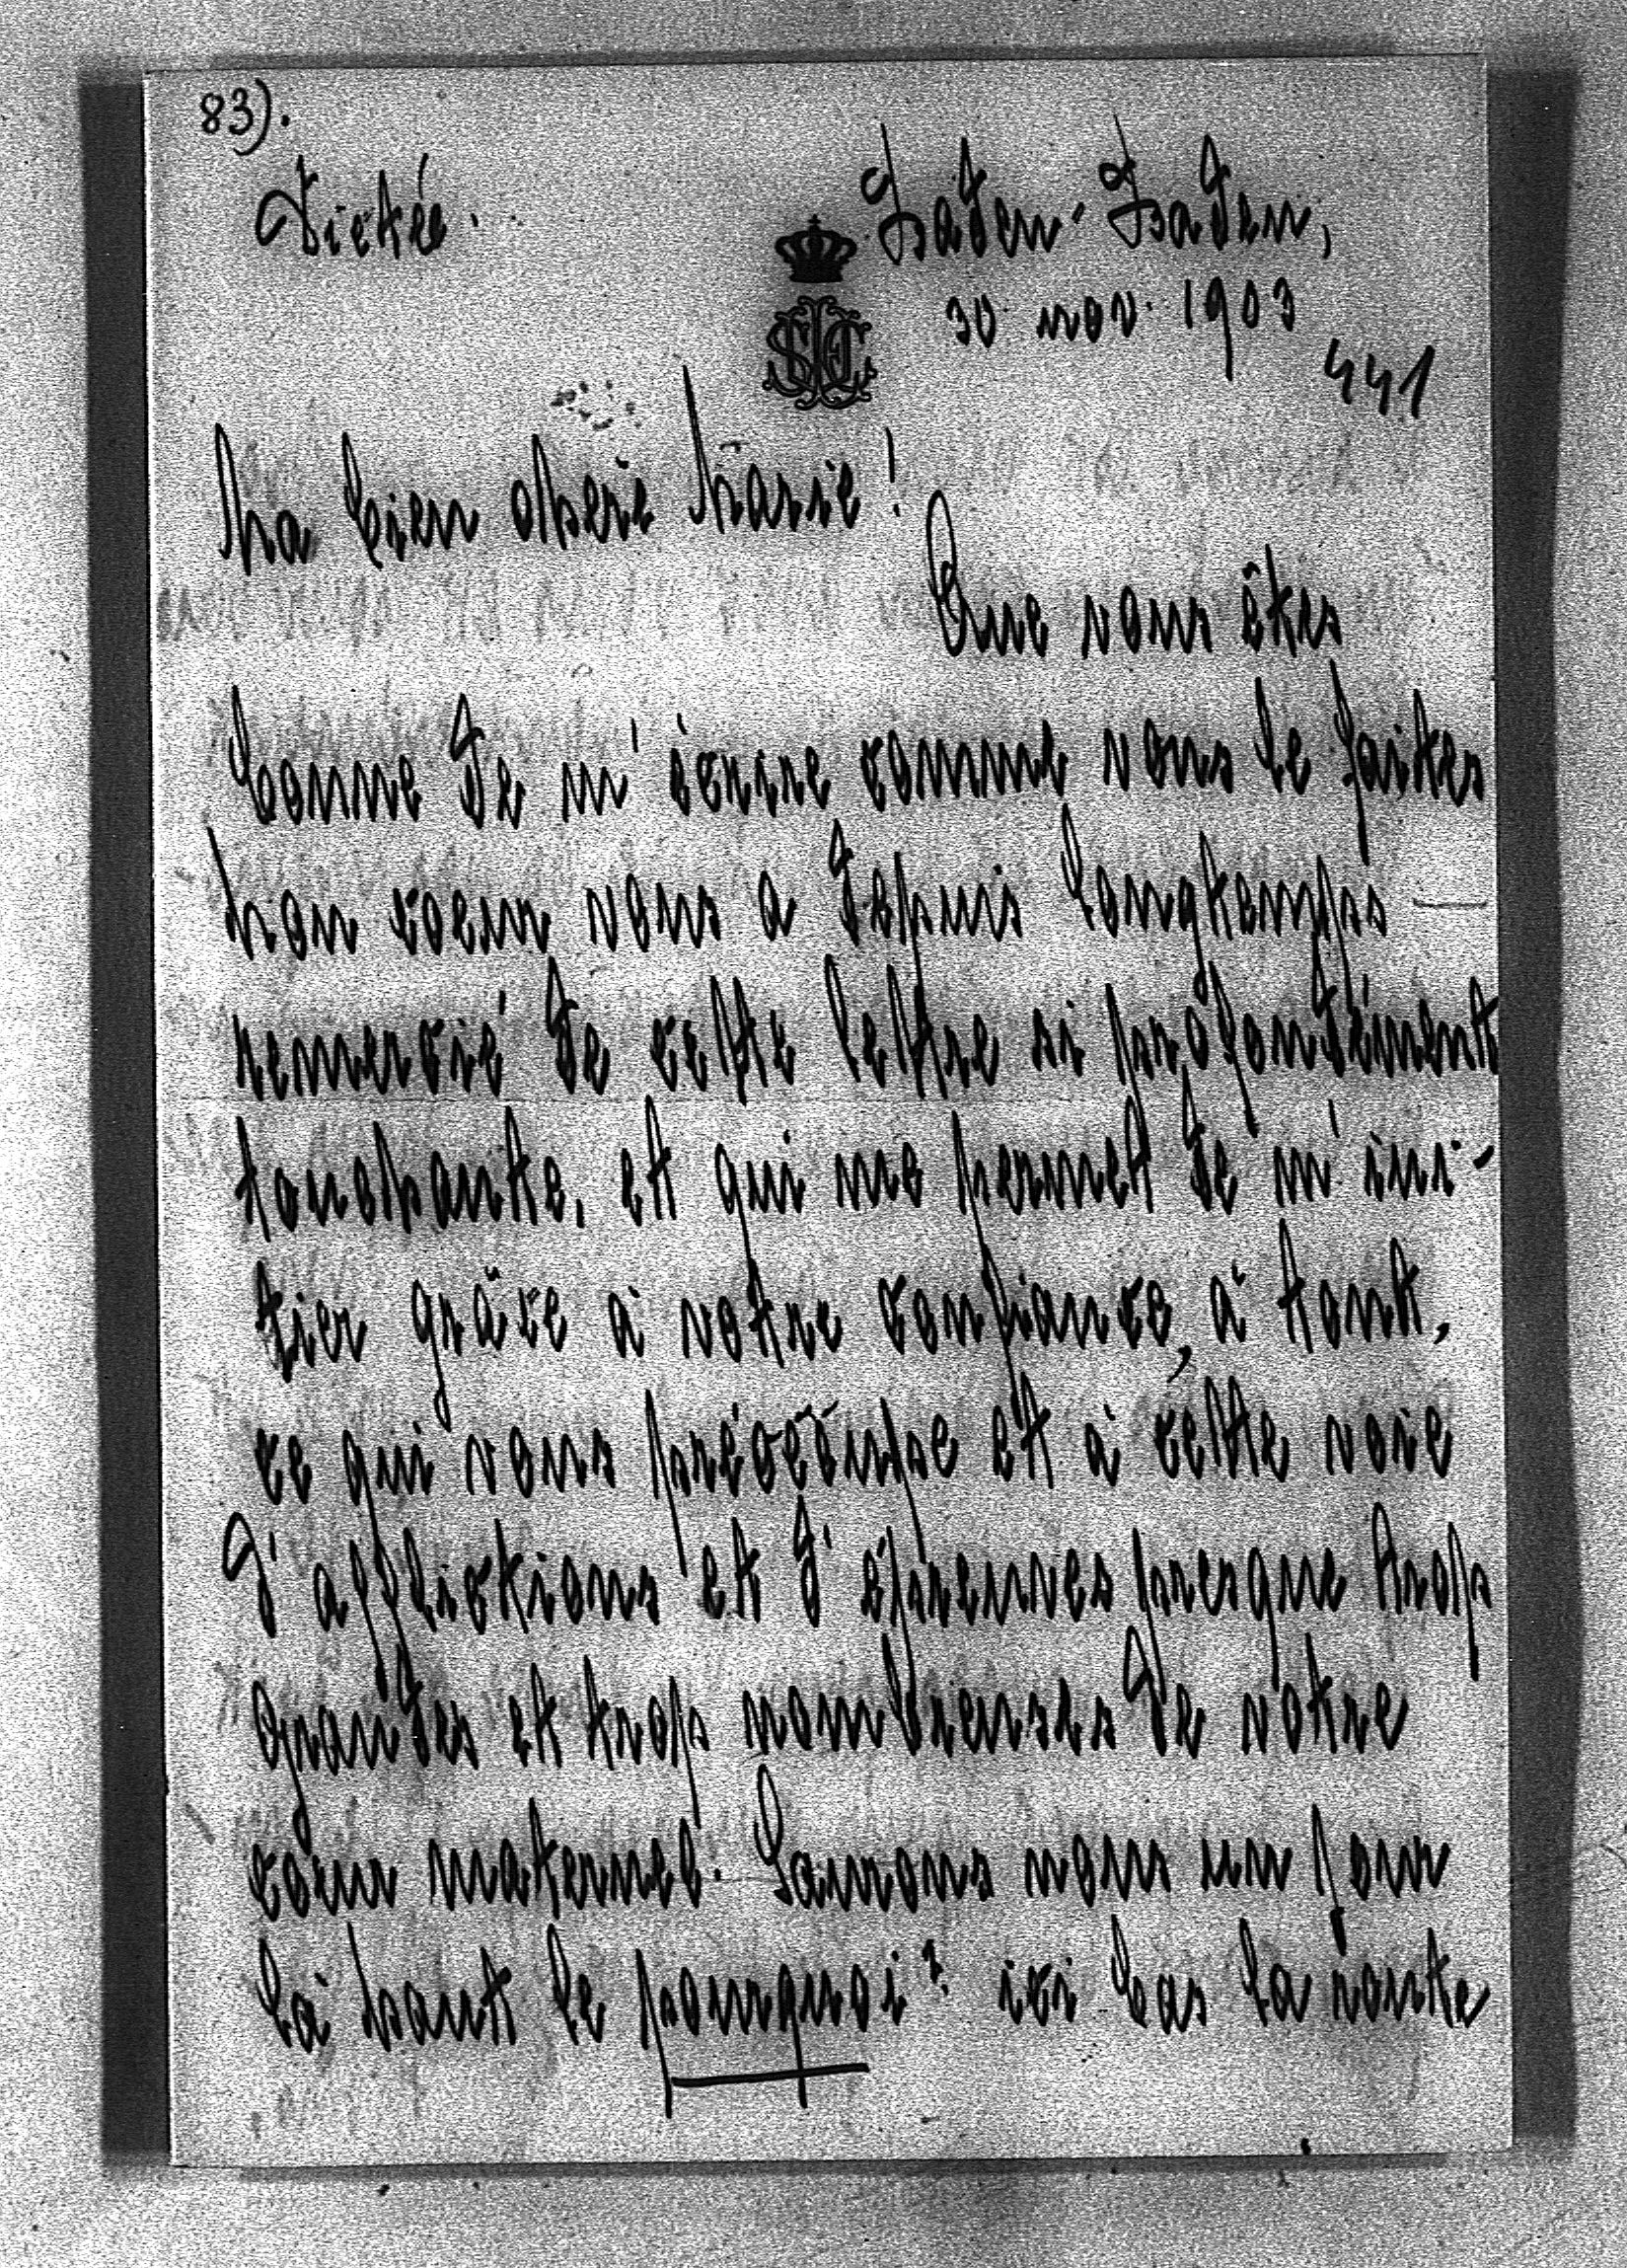 83).
Dictée.
Baden-Baden,
30 nov. 1903
441
Ma bien chère Marie!
Que vous êtes
bonne de m'écrire comme vous le faites
Mon coeur vous a depuis longtemps —
remercié de cette lettre si profondément
touchante, et qui me permet de m'ini-
tier grâce à votre confiance, à tout,
ce qui vous préoccupe et à cette voie
d'afflictions et d'épreuves presque trop
grandes et trop nombreuses de votre
coeur maternel. Saurons nous un jour
là haut le pourquoi? ici bas la route